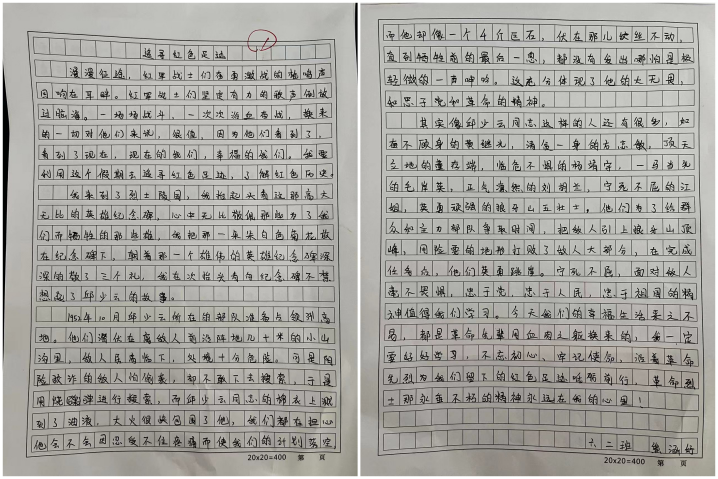 追寻红色足迹
漫漫征途，红军战士们在勇激战的枪鸣声
回响在耳畔。红军战士们坚定有力的歌声倒放
过脑海。一场场战斗，一次次浴血奋战，换来
的一切对他们来说，很值，因为他们看到了，
看到了现在，现在的我们，幸福的我们。我要
利用这个假期去追寻红色足迹，了解红色历史。
我来到了烈士陵园，我抬起头看这那高大
无比的英雄纪念碑，心中无比敬佩那些为了我
们而牺牲的那些雄，我把那一朵朱白色菊花放
在纪念碑下，朝着那一个雄伟的英雄纪念碑深
深的敬了三个礼，我在次抬头看向纪念碑不禁
想起了邱少云的故事。
1952年10月邱少云所在的部队准备占领391高
地。他们潜伏在离敌人前沿阵地几十米的小山
沟里，敌人居高临下，火烧十分危险。可是阴
险欺诈的敌人怕偷袭，却不敢下去搜索，于是
用烧弹进行搜索，而邱少云同志的棉衣上溅
到了油液，大火很快包围了他，我们都在担心
他会不会因忍受不住疼痛而使我们的计划落空
而他却像一个4斤巨石，伏在那儿纹丝不动，
直到牺牲前的最后一息，都没有发出哪怕是极
轻微的一声呻吟。这充分体现了他的大无畏，
和忠于党和革命的精神。
其实像邱少云同志这样的人还有很多，如
奋不顾身的黄继光，清贫一身的方志敏，顶天
立地的董存瑞，临危不惧的杨靖宇，一马当先
的毛岸英，正气凛然的刘胡兰，宁死不屈的江
姐，英勇顽强的狼牙山五壮士。他们为了给群
众和主力部队争取时间，把敌人引上狼牙山顶
峰，用险要的地形打败了敌人大部分，在完成
任务点，他们英勇跳崖。宁死不屈，面对敌人
毫不畏惧，忠于党，忠于人民，忠于祖国的精
神值得我们学习。今天我们的幸福生活来之不
易，都是革命先辈用血肉之躯换来的，我一定
要好好学习，不忘初心、牢记使命，沿着革命
先烈为我们留下的红色足迹砥砺前行，革命烈
士那永垂不朽的精神永远在我的心里！
六二班
20×20=400 第 页
20×20=400 第 页